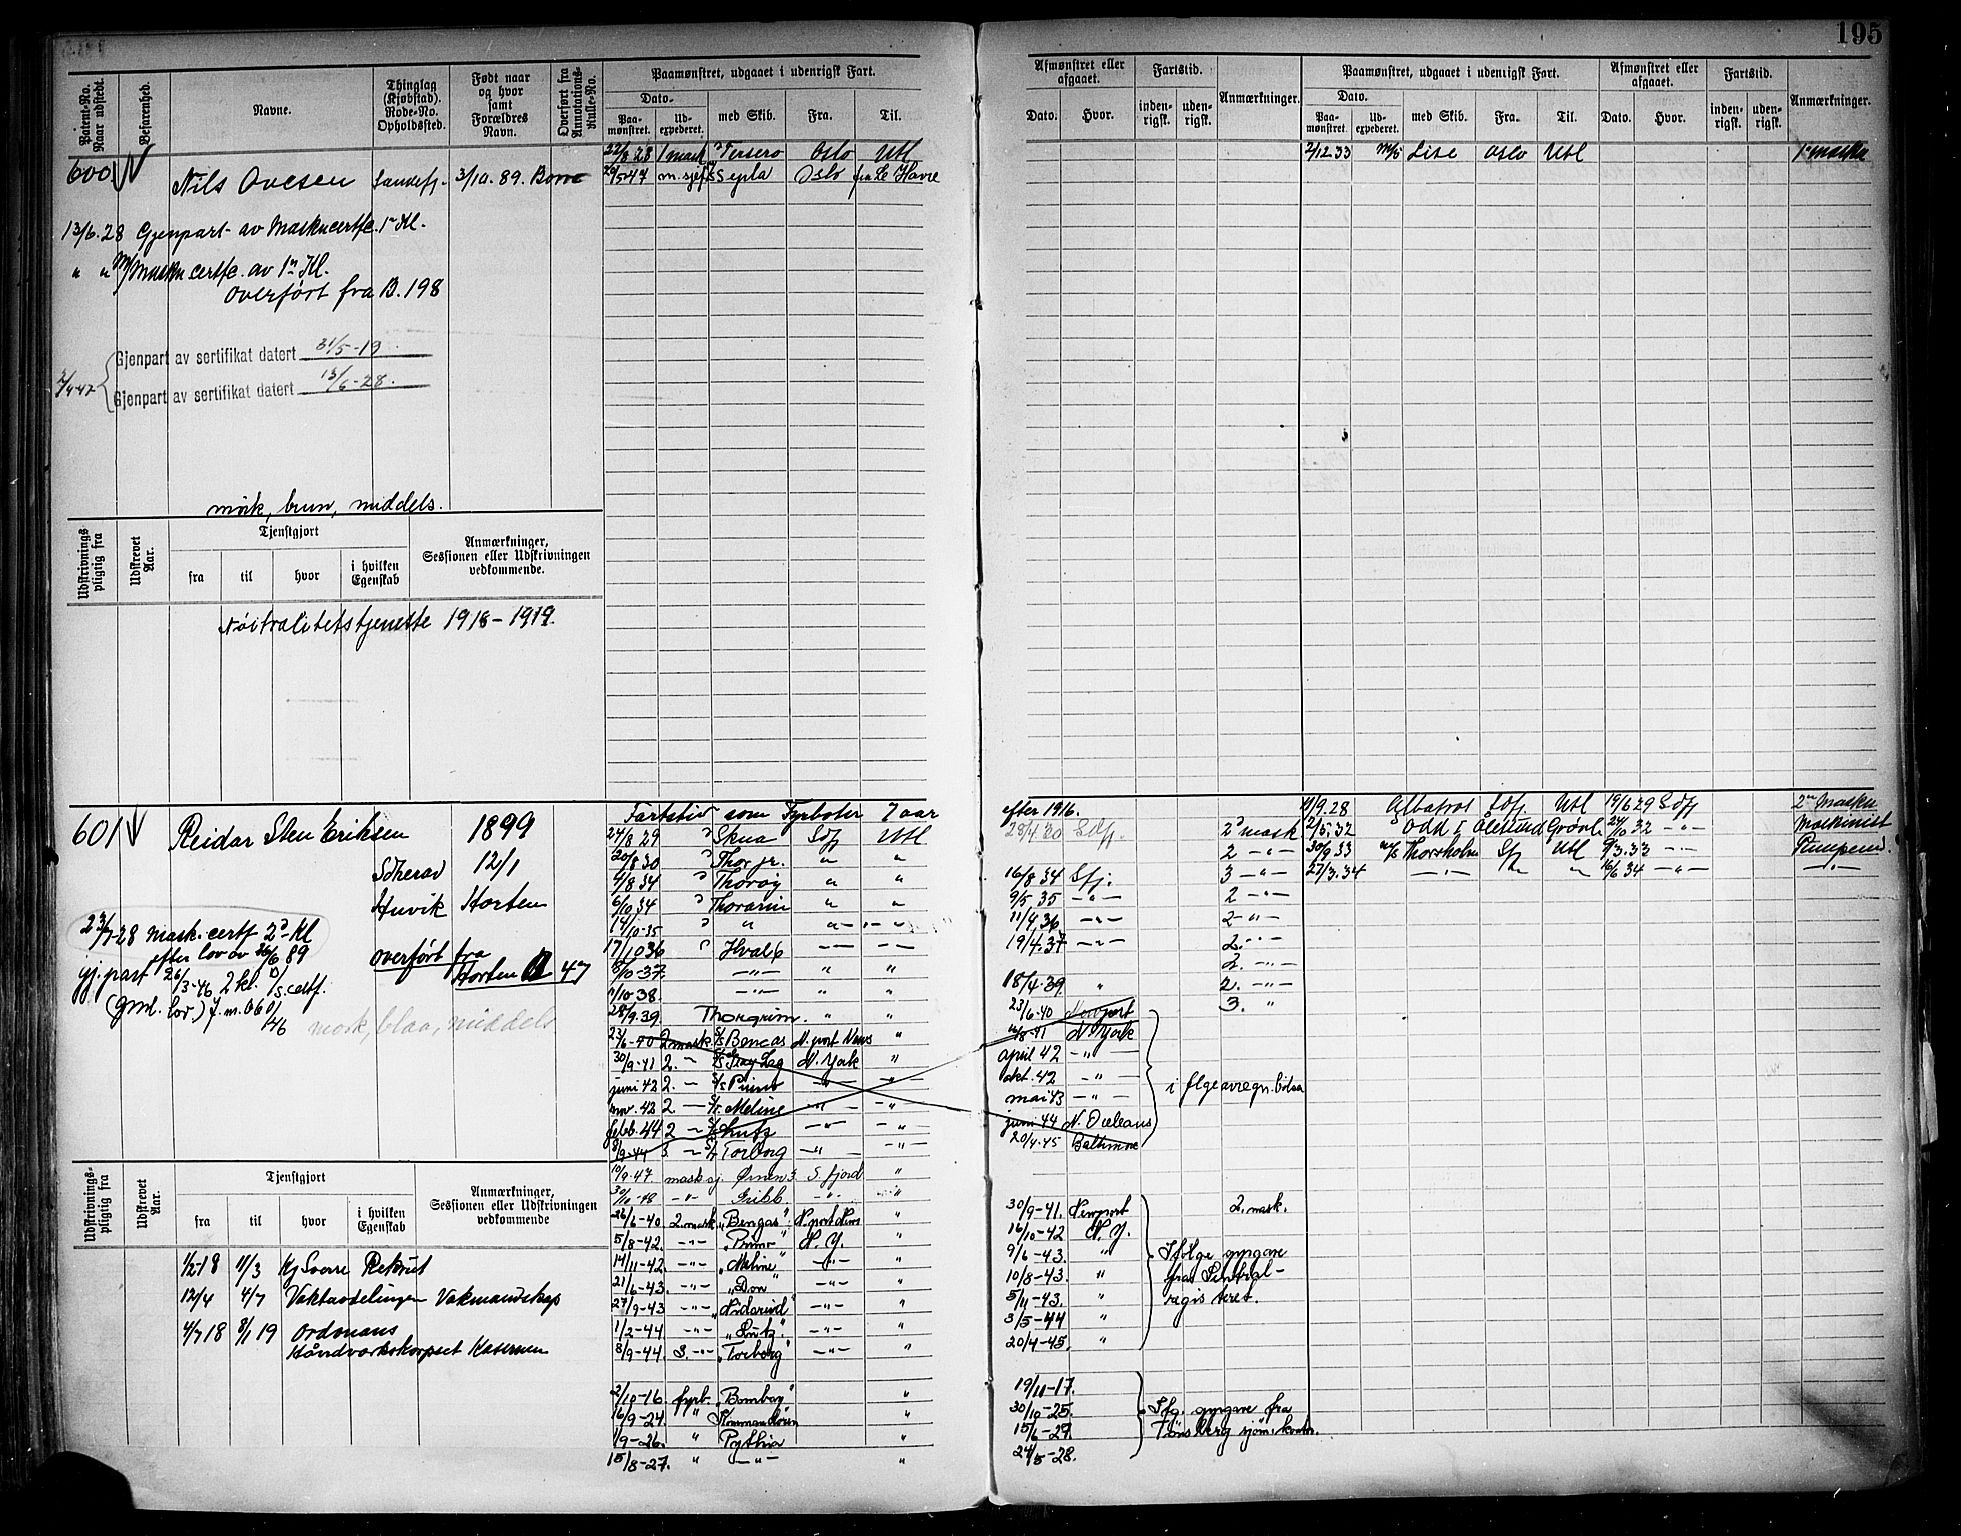 195
Patent-No. Naar udstedt.
Befarenhed.
Navne.
Thinglag (Kjøbstad). Rode-No. Opholdssted.
Født naar og hvor samt Forældres Navn.
Overført fra Annotations-Rulle-No.
Paamønstret, udgaaet i udenrigsk Fart.
Dato.
Paa-mønstret. Ud-expederet. med Skib. Fra. Til.
600 Nils Ovesen Sandefj. 3/10.89. Borre
22/8 28 1 mask Tersero Oslo Utl
20/5-47 m.sjef Oslo fra Le Havre
13/6.28 Gjenpart av Maskncertfc. 1 Kl.
" " M/Maskn certfc. av 1ᵉ Kl.
overført fra B.198
Gjenpart av sertifikat datert 31/5-19
Gjenpart av sertifikat datert 13/6-28.
mørk, brun, middels.
Udskrivningspligtig fra
Udskrevet Aar.
Tjenstgjort
fra til hvor i hvilken Egenskab
Anmærkninger, Sessionen eller Udskrivningen vedkommende.
Nøitralitetstjeneste 1918-1919.
601 Reidar Sten Eriksen 1899
Sdherad 12/1
Huvik Horten
23/7-28 mask. certf 2ᵈ Kl
efter lov av 26/6 89
overført fra
Horten A 47
gj.part 26/3-46 2 kl. D/S certf.
(gml. lov)
mørk, blaa, middels
Fartstid som Fyrbøter 7 aar
24/8 29 Skua Sdfj Utl
20/8 30 Thor jr. " "
4/8 34 Thorøy " "
6/10 34 Thorarin " "
14/10-35 " " - " -
17/10 36 Hval 6 - " - - " -
8/10-37. - " - " "
1/10 38. - " - " "
28/9.39 Thorgrim. " "
23/6-40 2 mask S/S Bencas N.port News "
30/9-41 2. - S/S Gray Lag N. York "
juni 42 2. - S/S Primo - " - - " -
nov. 42 2 - S/S Meline - " - - " -
febb. 44 2 - S/S Lutz - " - "
8/9-44 3. - S/S Torborg - " - - " -
10/9-47 mask sj. Ørnen 3 S. fjord "
30/10-48 - " - Gribb - " - "
26/6-40 2.mask "Bengas" N.port News "
5/8-42. - " - "Primo" N. Y. "
14/11-42. - " - "Meline" - " - "
21/6-43. - " - "Don" - " - "
27/9-43 - " - "Nidareid" - " - "
1/2-44 - " - "Lutz" - " - "
8/9-44. 3. - " - "Torborg" - " - "
2/10-16 fyrb. "Bombay" "
16/9-24. " Kommandøren "
1/9-26. " Pythia "
15/8-27. " - " - "
Udskrivningspligtig fra
Udskrevet Aar.
Tjenstgjort
fra til hvor i hvilken Egenskab
Anmærkninger, Sessionen eller Udskrivningen vedkommende
1/2-18 11/3 Kj Svare Rekrut
12/4 4/7 Vaktavdelingen Vakmandskap
4/7 18 8/1 19 Ordonans
Håndverkskorpset Kasernen
Afmønstret eller afgaaet.
Dato. Hvor.
Fartstid.
inden-rigsk. uden-rigsk.
Anmærkninger.
Paamønstret, udgaaet i udenrigsk Fart.
Dato.
Paa-mønstret. Ud-expederet. med Skib. Fra. Til.
Afmønstret eller afgaaet.
Dato. Hvor.
Fartstid.
inden-rigsk. uden-rigsk.
Anmærkninger.
2/12.33 m/s Lise Oslo Utl 1ᵉ maskn
efter 1916. 11/9.28 Albatros Sdfj Utl 19/6 29 Sdfj 2ᵉⁿ Maskn
23/4 30 Sdfj. 2ᵈ mask 2/5.32 Odd I Ålesund Grønl. 24/10 32 - " - Maskinist
2 - " - 30/9 33 m/s Thorsholm Sfj Utl 9/3.33 - " - Pumpemd.
16/8 34 Sfj. 3 - " - 27/3.34 - " - " " 16/6 34 - " - - " -
9/5 35 - " - 2 - " -
11/4.36 - " - 2 - " -
19/4.37 - " - 2. - " -
2. - " -
18/4.39 " 2. - " -
23/6-40 Newport 3. "
N. York
april 42 - " -
okt. 42 - " -
mai 43 - " -
juni 44 N. Orleans
20/4-45 Baltimore
30/9-41. Newport 2. mask.
16/10-42 N. Y.
9/6-43. "
10/8-43. "
5/11-43. "
3/5-44 "
20/4-45. "
Ifølge opgave
fra Sentral-
registeret.
19/11-17.
30/10-25.
15/6-27.
24/5-28.
Ifg. opgave fra
Tønsberg sjøm.kontor.